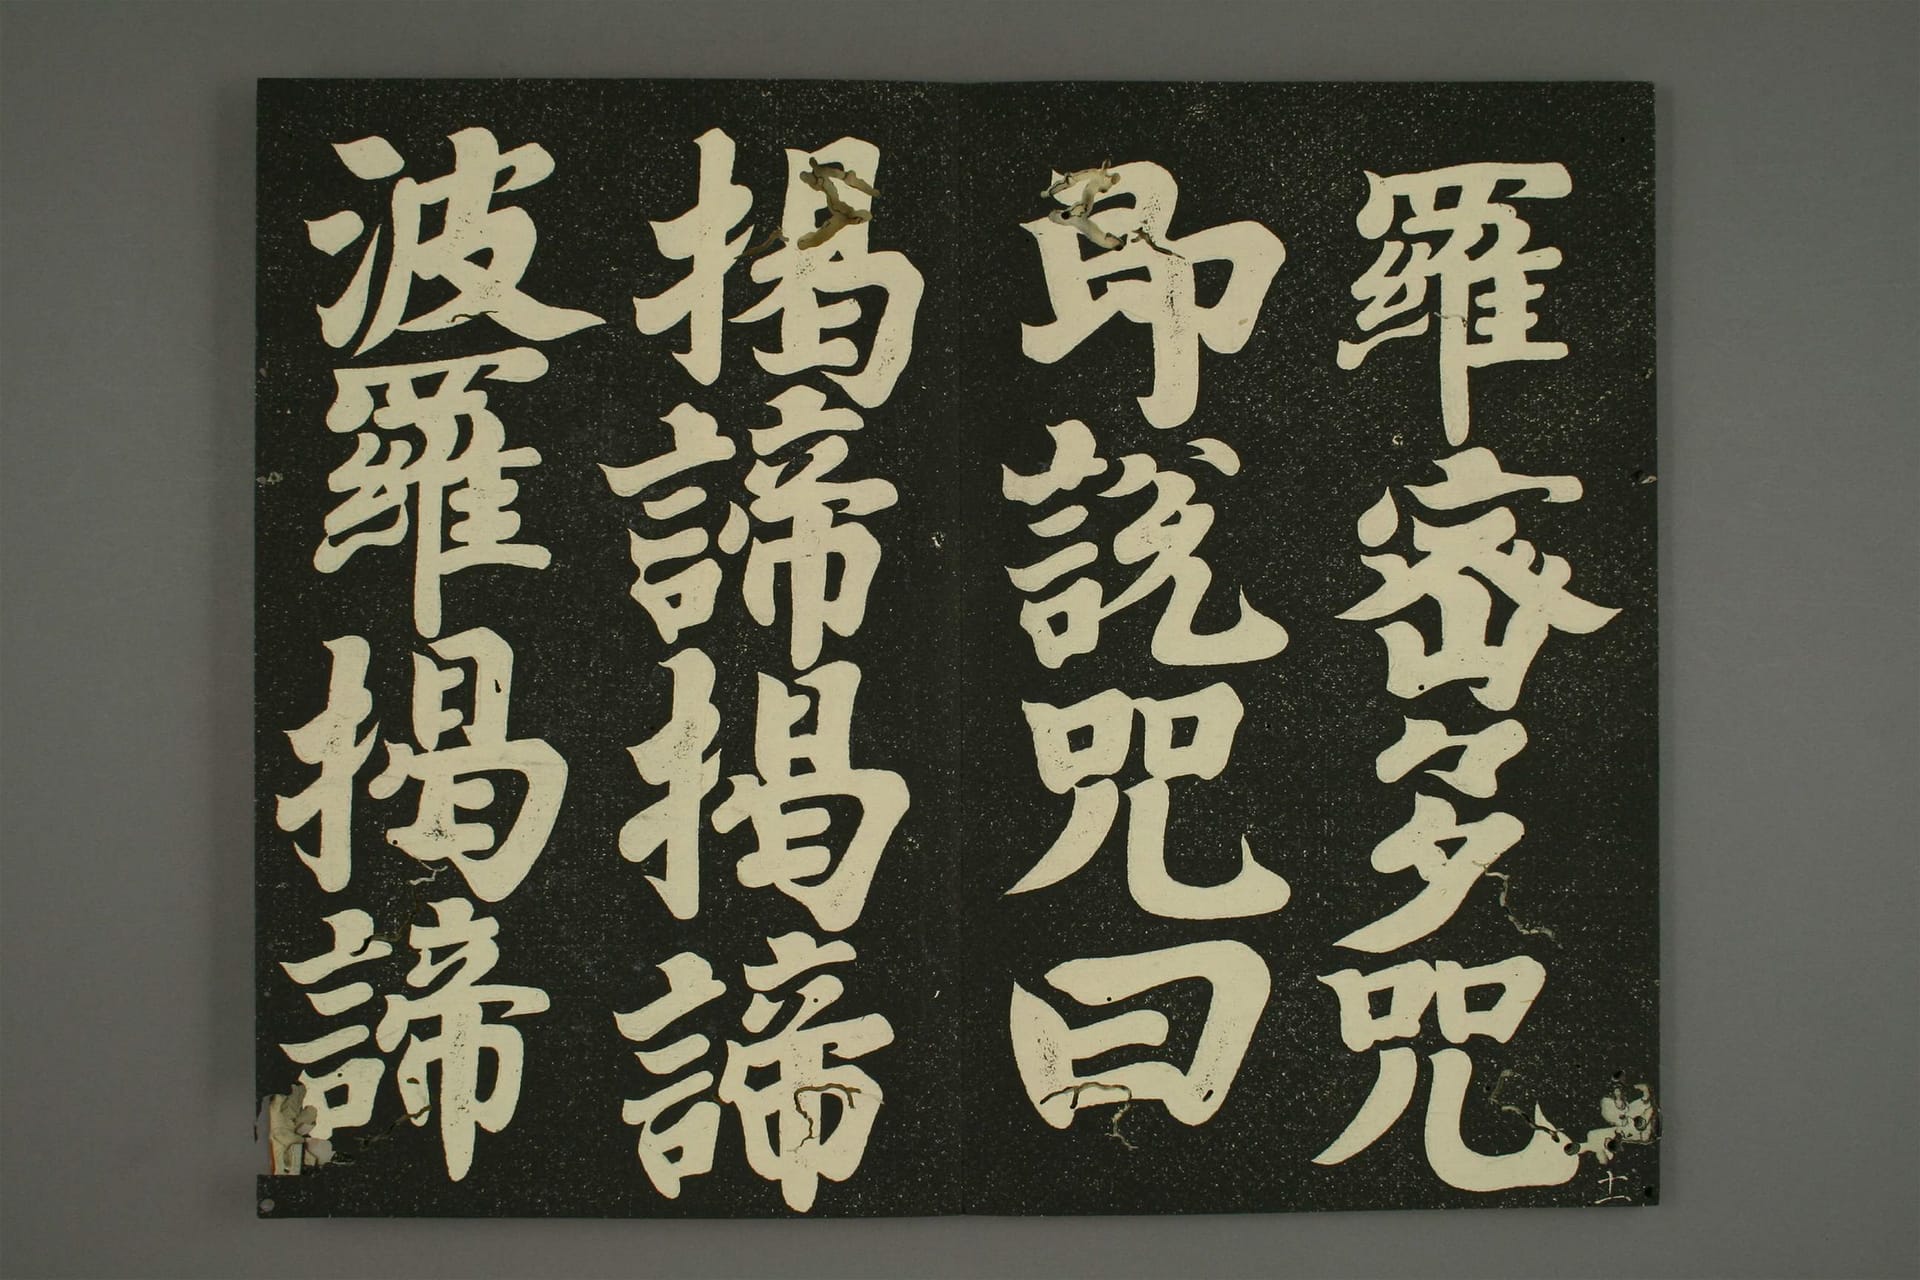 羅密多咒
即說咒曰
揭諦揭諦
波羅揭諦
十一